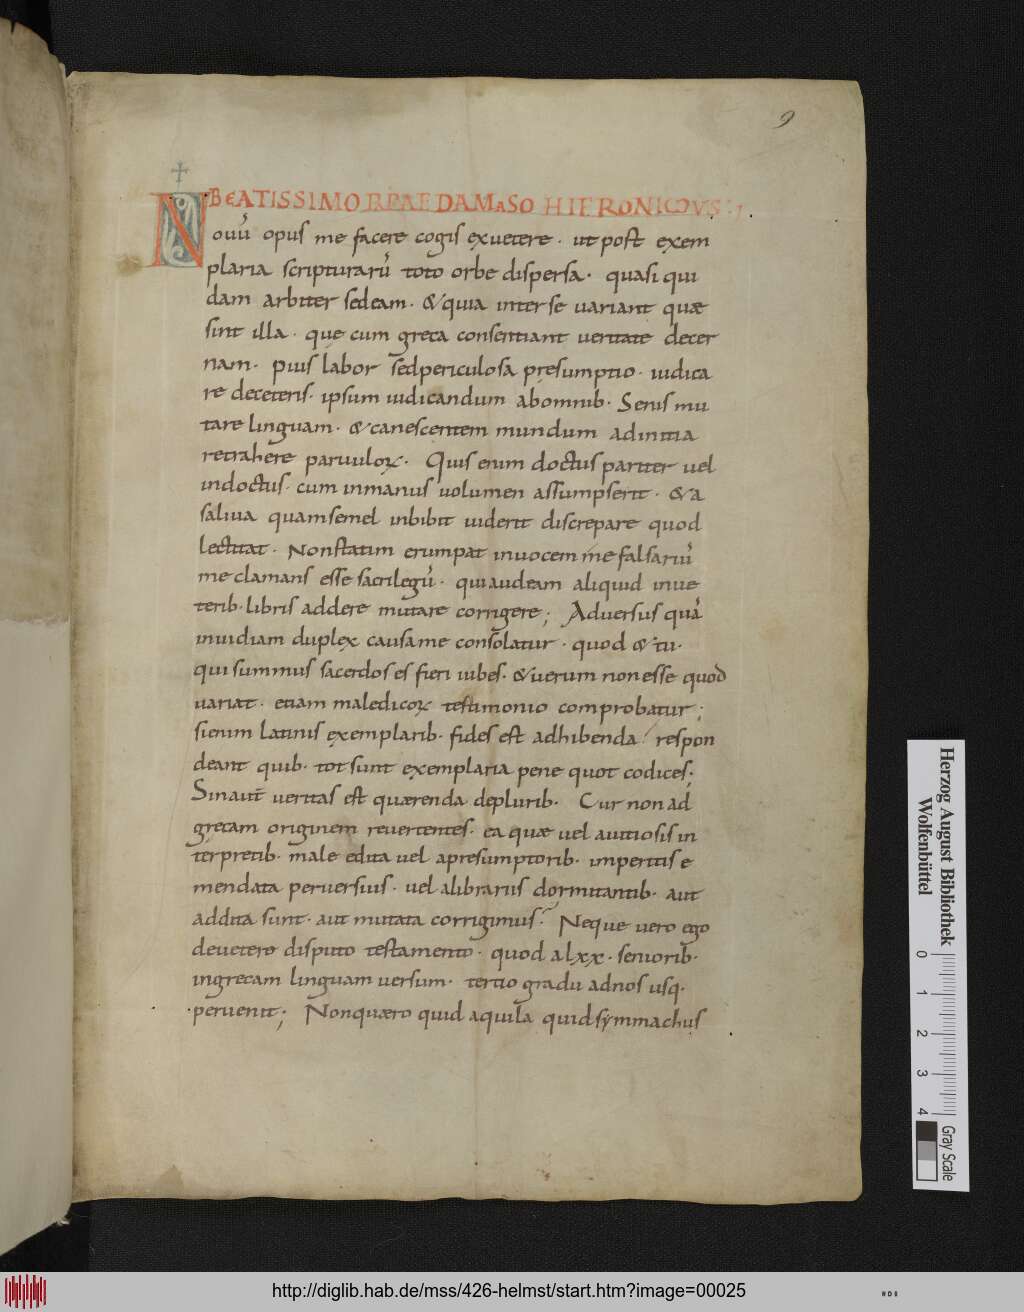 9
BEATISSIMO PAPAE DAMASO HIERONIMUS
Nouū opus me facere cogis exuetere · ut post exem
plaria scripturarū toto orbe dispersa · quasi qui
dam arbiter sedeam · & quia interse uariant quæ
sint illa · que cum greca consentiant ueritate decer
nam · Pius labor sedpericulosa pręsumptio · iudica
re deceteris · ipsum iudicandum abomnib· Senis mu
tare linguam · & canescentem mundum adinitia
retrahere paruuloꝝ · Quis enim doctus pariter uel
indoctus · cum inmanus uolumen assumpserit · & a
saliua quamsemel inbibit uiderit discrepare quod
lectitat · Nonstatim erumpat inuocem me falsariū
me clamans esse sacrilegū · qui audeam aliquid inue
terib· libris addere mutare corrigere ; Aduersus quā
inuidiam duplex causa me consolatur · quod & tu ·
qui summus sacerdos es fieri iubes · & uerum non esse quod
uariat · etiam maledicoꝝ testimonio comprobatur ;
sienim latinis exemplarib· fides est adhibenda / respon
deant quib· tot sunt exemplaria pene quot codices ;
Sinaut ueritas est quærenda deplurib· Cur non ad
grecam originem reuertentes · ea quæ uel auitiosis in
terpretib· male edita uel apresumptorib· imperitis e
mendata peruersius · uel alibrariis dormitantib· aut
addita sunt · aut mutata corrigimus ? Neque uero ego
deuetere disputo testamento · quod alxx · seniorib·
ingrecam linguam uersum · tertio gradu adnos usq·
peruenit ; Nonquæro quid aquila quid symmachus
Herzog August Bibliothek
Wolfenbüttel
0 1 2 3 4
Gray Scale
http://diglib.hab.de/mss/426-helmst/start.htm?image=00025